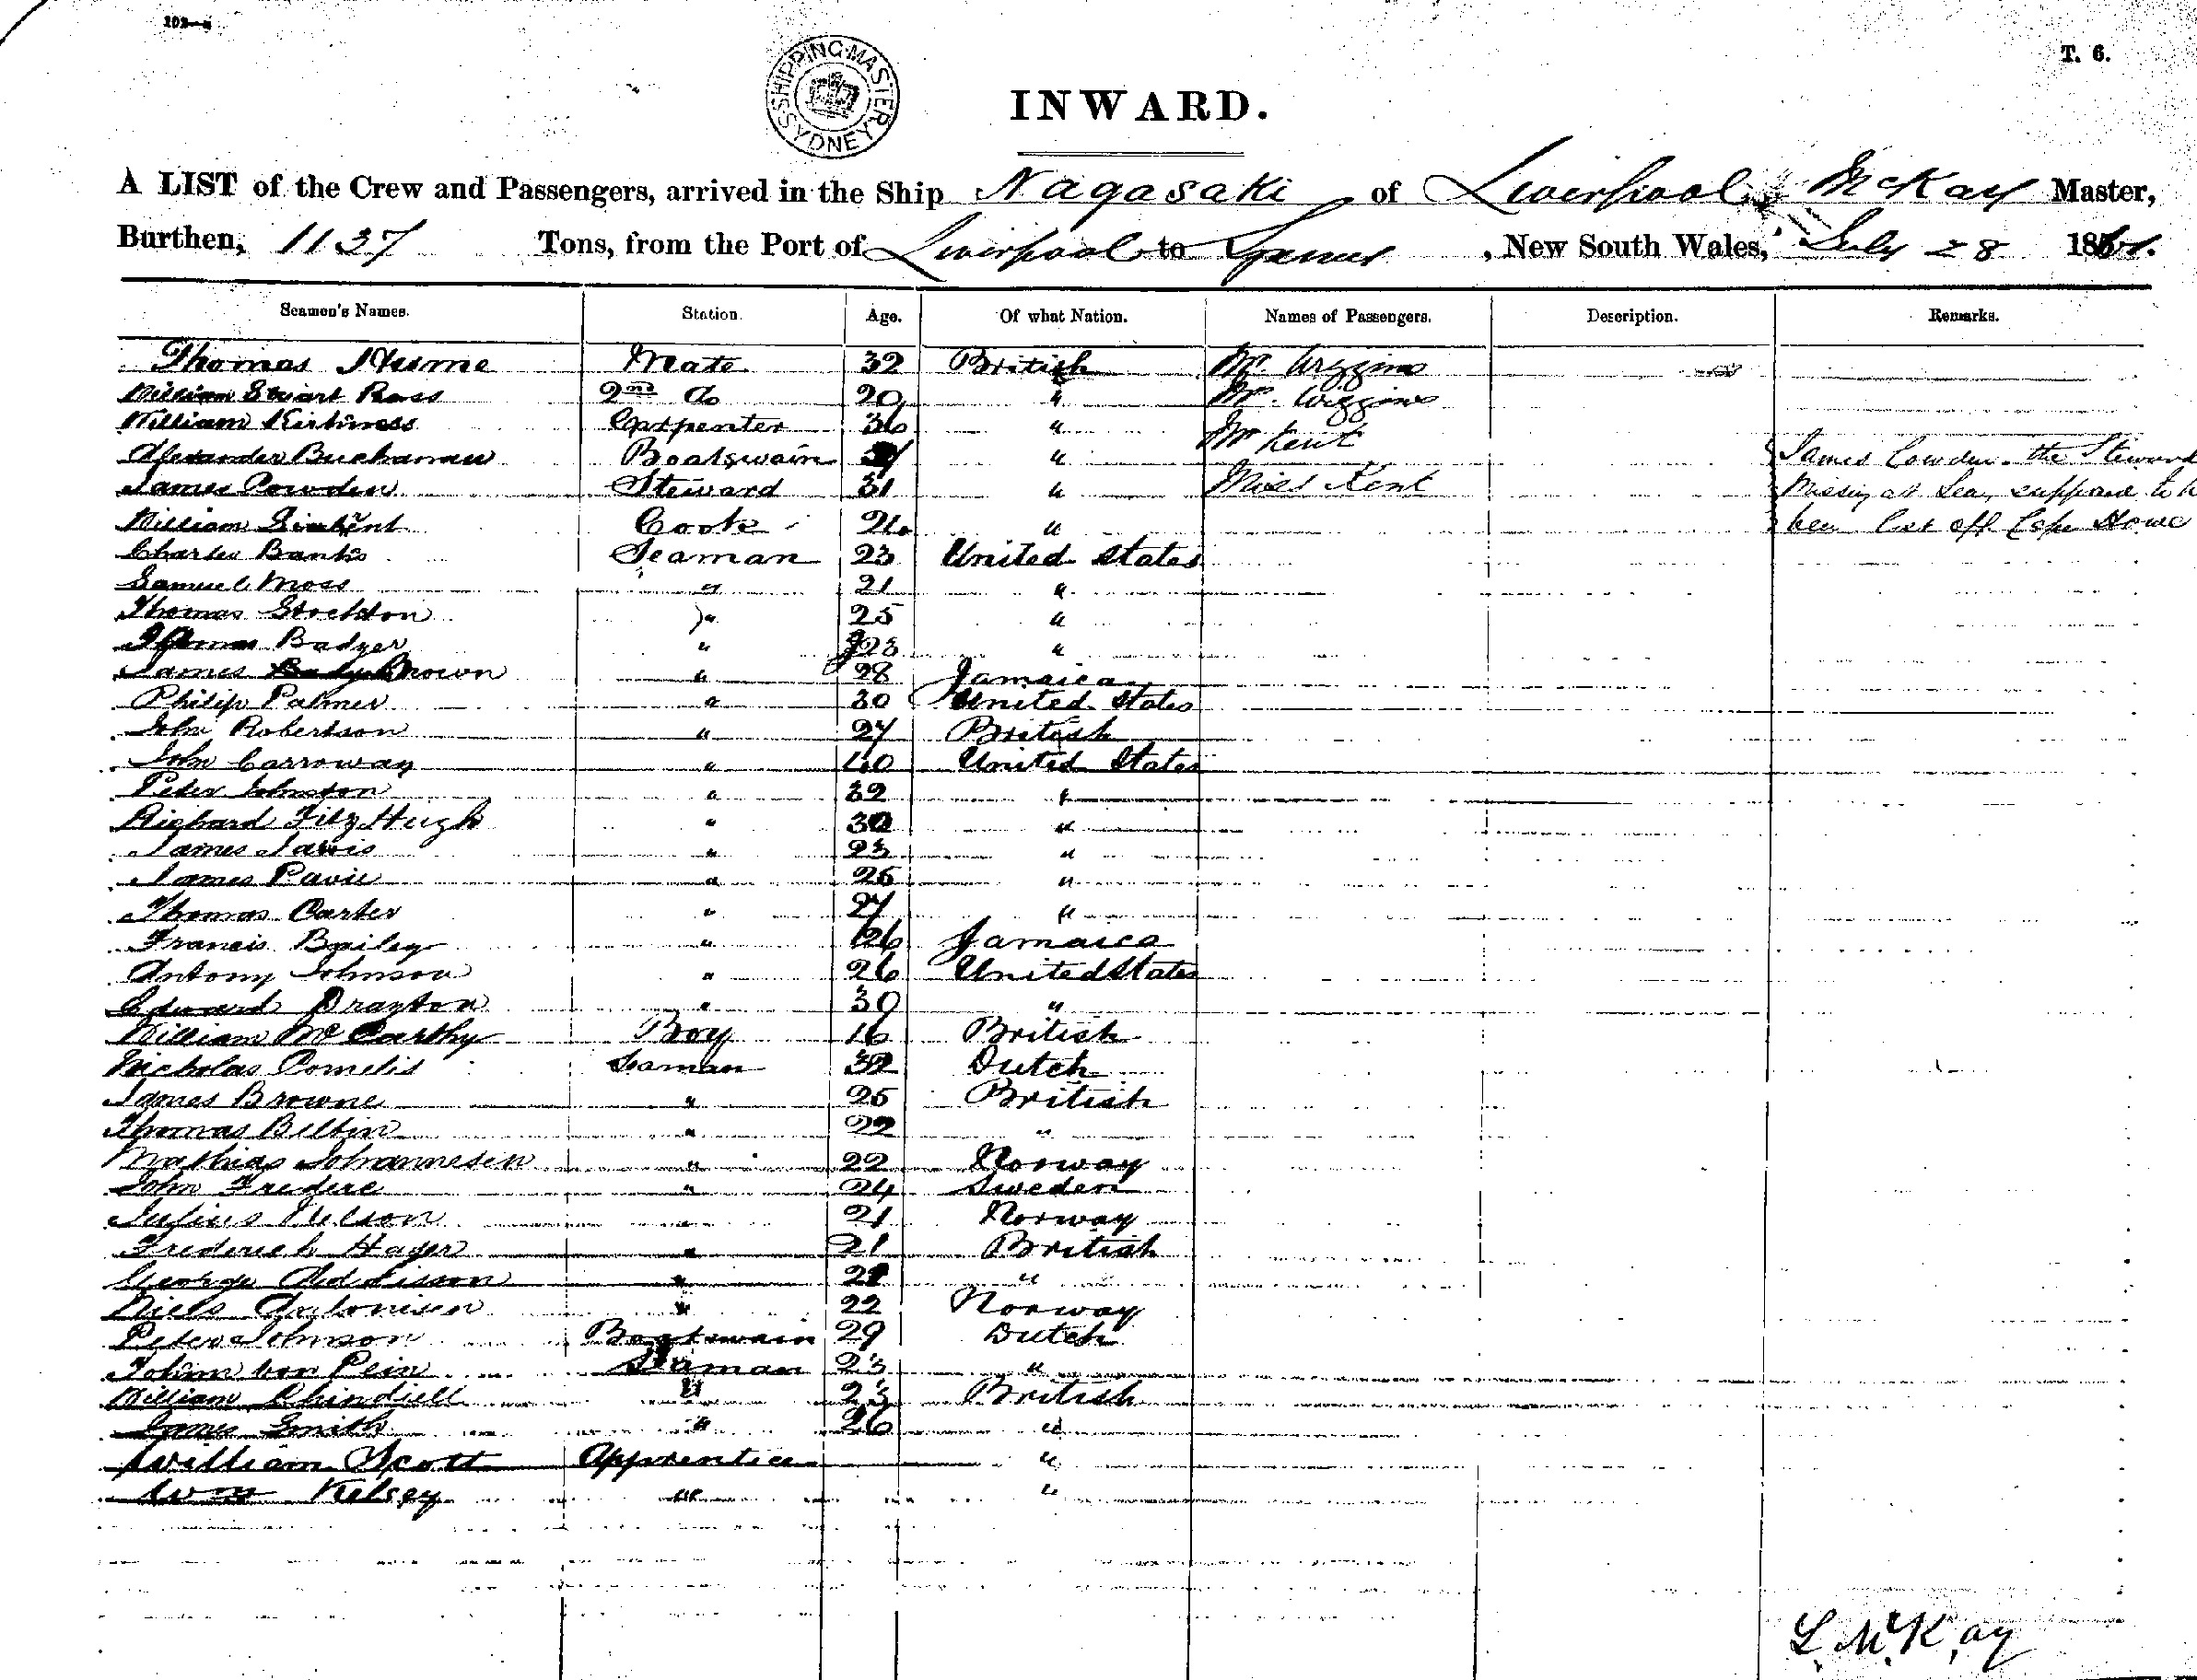 102—a
T. 6.
SHIPPING MASTER SYDNEY
INWARD.
A LIST of the Crew and Passengers, arrived in the Ship Nagasaki of Liverpool, McKay Master,
Burthen, 1137 Tons, from the Port of Liverpool to Sydney, New South Wales, July 28 1861.
Seamen's Names. Station. Age. Of what Nation. Names of Passengers. Description. Remarks.
Thomas Hume Mate 32 British Mr. Wiggins
William Stuart Ross 2nd do 20 " Mr. Wiggins
William Kirkness Carpenter 36 " Mr Kent
Alexander Buchanan Boatswain " James Cowden the Steward
James Cowden Steward 31 " Miss Kent Missing at Sea, suppose to h
William Cook 26 " been lost off Cape Howe
Charles Banks Seaman 23 United States
Samuel Moss " 21 "
Thomas Stockton " 25 "
Thomas Badger " 23 "
James Brown " 28 Jamaica
Philip Palmer " 30 United States
John Robertson " 27 British
John Carroway " 40 United States
Peter Johnston " 32 "
Richard FitzHugh " 30 "
James Jarvis " 23 "
James Pavie " 25 "
Thomas Carter " 27 "
Francis Bailey " 26 Jamaica
Antony Johnson " 26 United States
Edward Drayton " 30 "
William McCarthy Boy 16 British
Nicholas Cornelis Seaman 32 Dutch
James Browne " 25 British
Thomas " 22 "
Mathias Johannesen " 22 Norway
John Frederc " 24 Sweden
Julius Nelson " 21 Norway
Frederich Hager " 21 British
George Addisson " 21 "
Niels Antonisen " 22 Norway
Peter Johnson Boatswain 29 Dutch
Johim von Pein Seaman 23 "
William Chindsell " 23 British
James Smith " 26 "
William Scott Apprentice "
Wm Kelsey " "
L. McKay